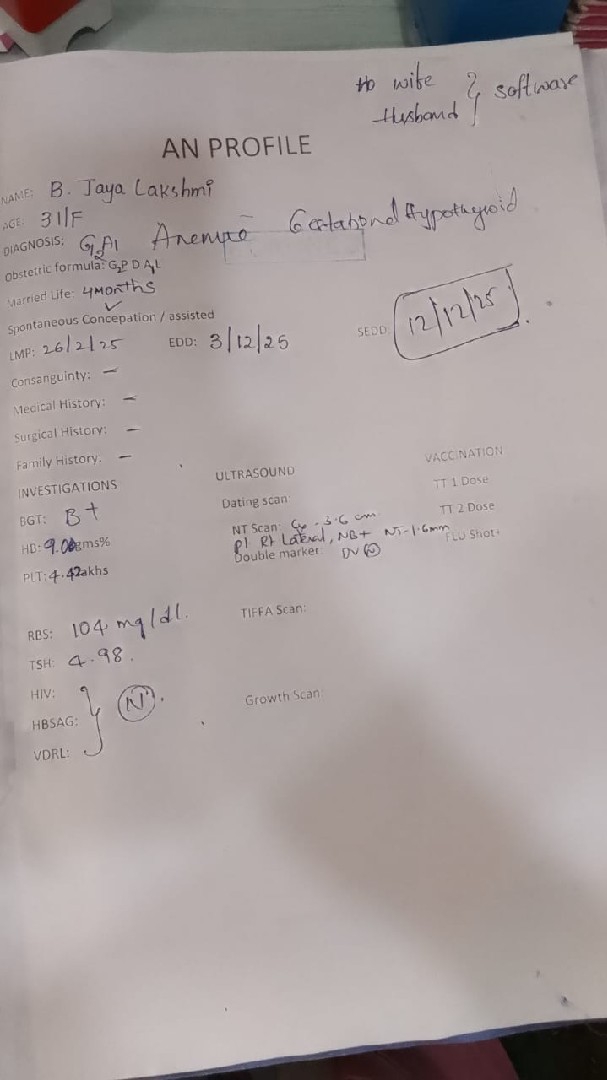 wife } software
Husband
AN PROFILE
NAME: B. Jaya Lakshmi
AGE: 31/F
DIAGNOSIS: G2A1 Gestational Hypothyroid
Obstetric formula: G2P0A1L
Married Life: 4Months
Spontaneous Conception / assisted
LMP: 26/2/25 EDD: 3/12/25 SEDD: 12/12/25
Consanguinty: –
Medical History: –
Surgical History: –
Family History: –
INVESTIGATIONS ULTRASOUND VACCINATION
BGT: B+ Dating scan: TT 1 Dose
HB: gms% NT Scan: 3.6 cm TT 2 Dose
Pl Rt Lateral, NB+ NT-1.6mm
PLT: 4.42lakhs Double marker DV (N) FLU Shot:
RBS: 104 mg/dl. TIFFA Scan:
TSH: 4.98.
HIV:
HBSAG: } (N). Growth Scan:
VDRL: